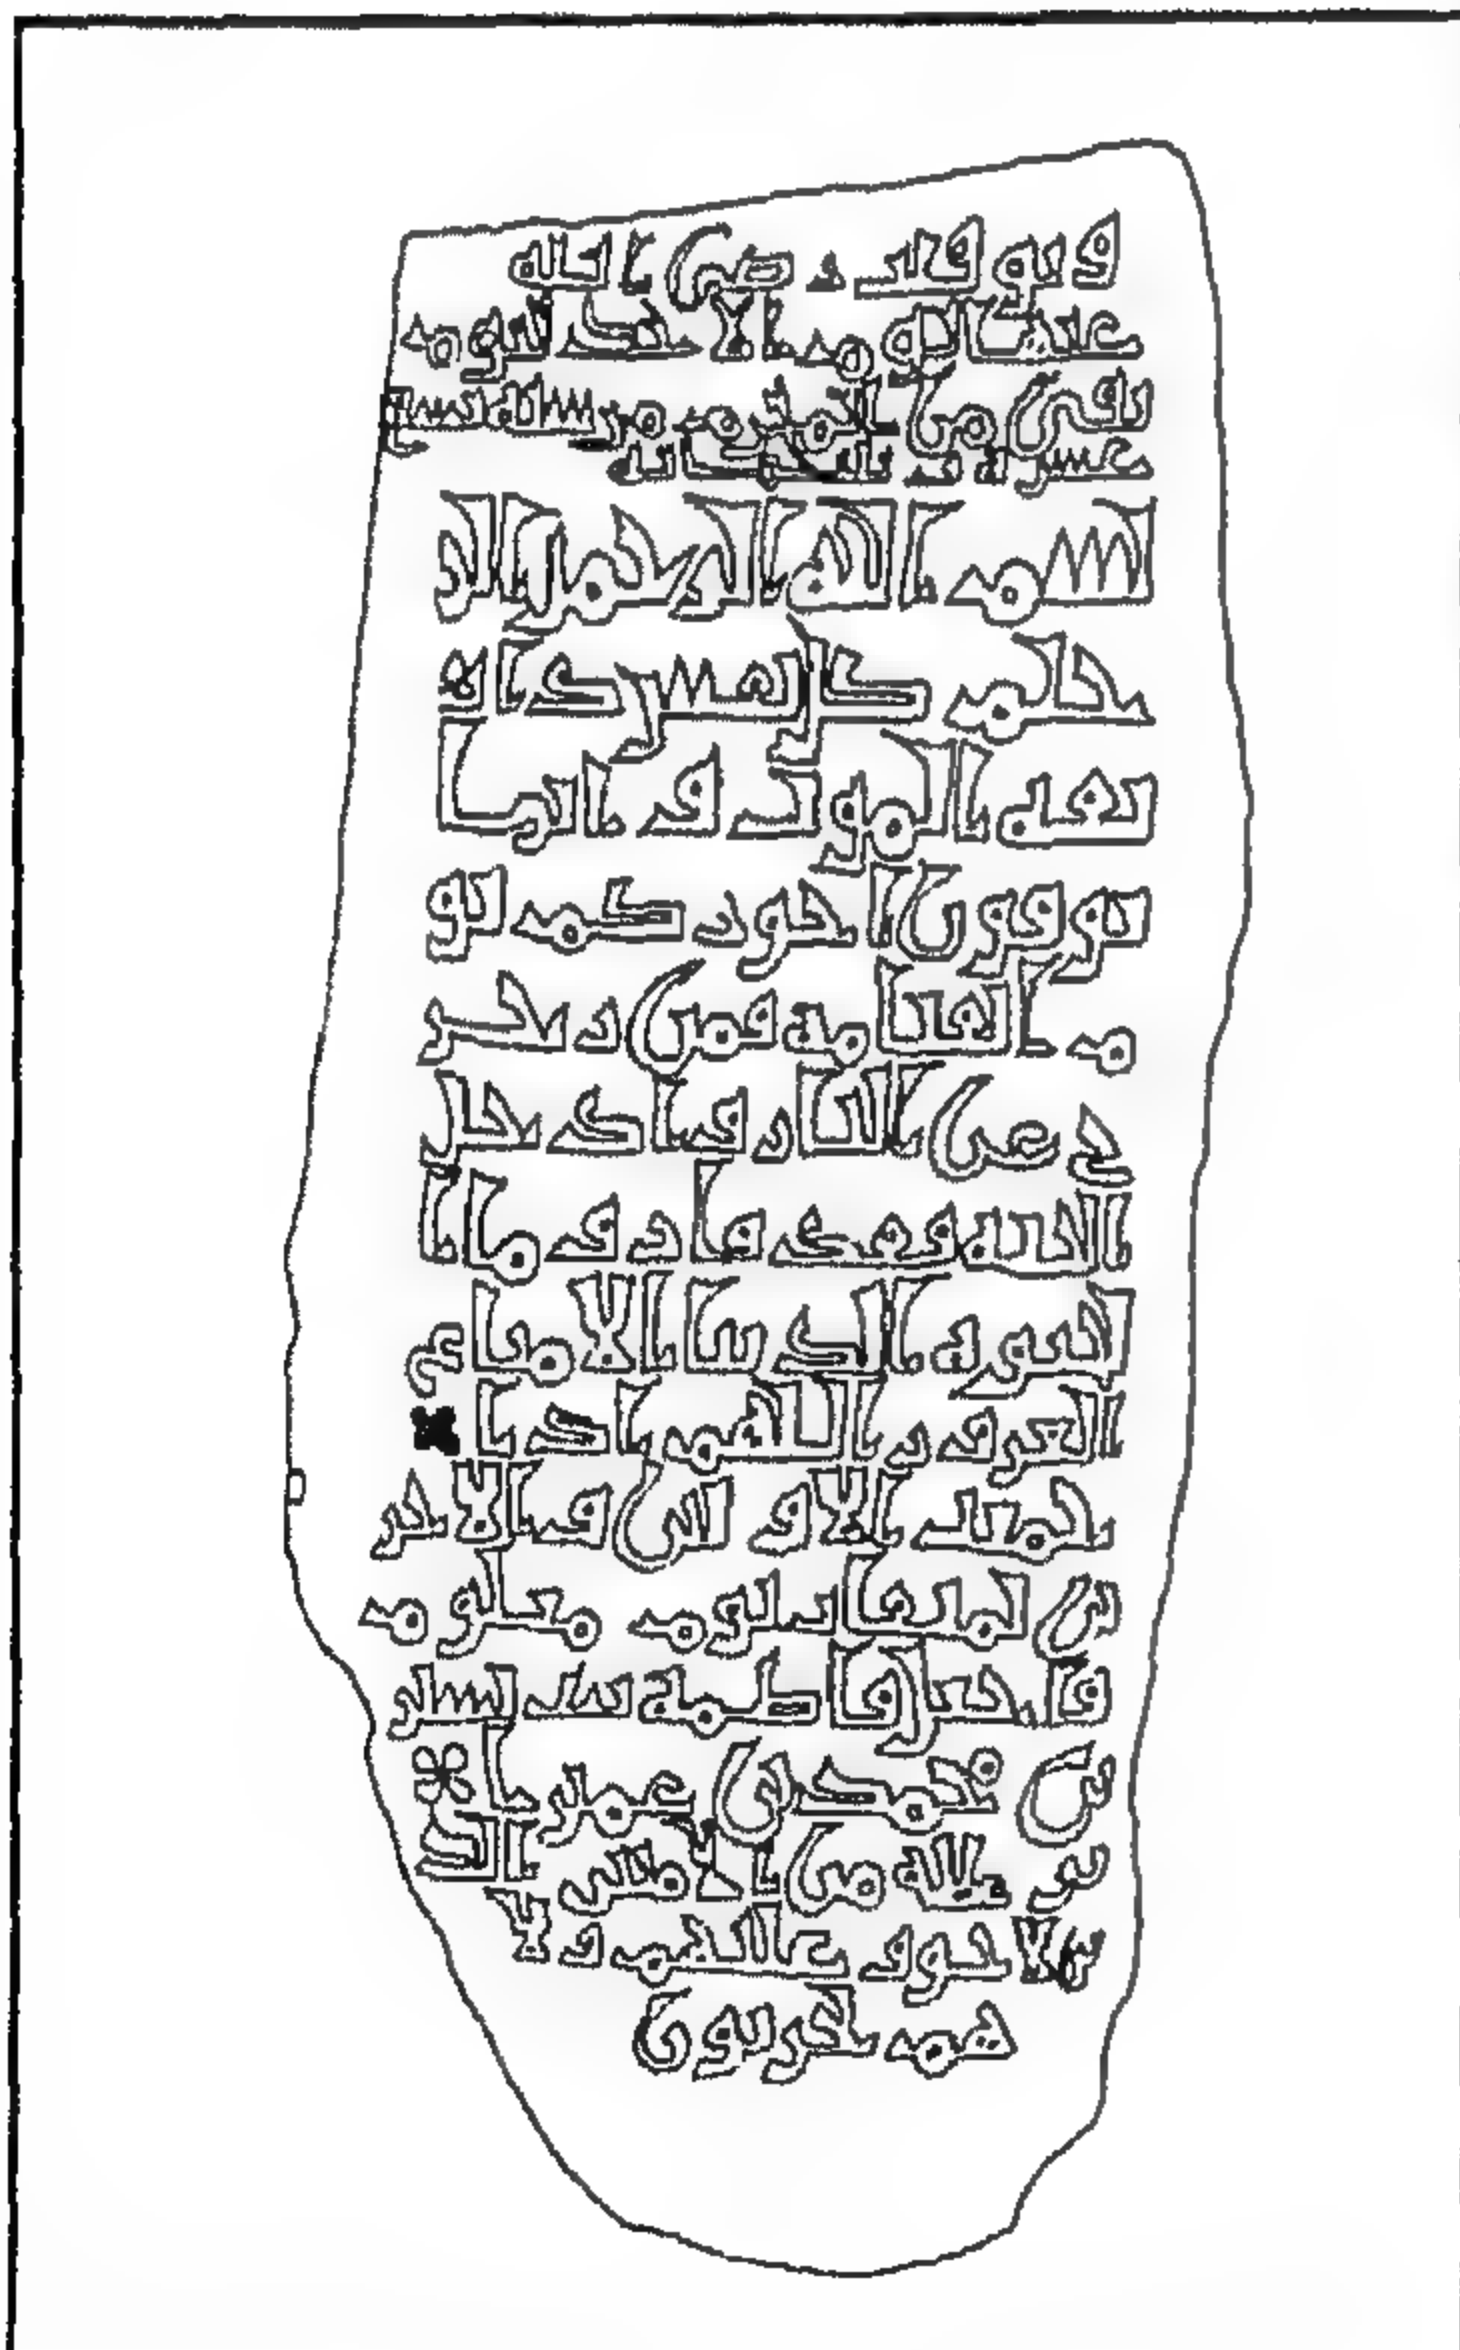 وتوفيت رضي الله
عنها يوم الاحد ليوم
بقي من المحرم من سنة تسع
عشرة
بسم الله الرحمن الر
حيم كل نفس ذا
ئقة الموت وانما
توفون اجوركم يو
م القيامة فمن زحز
ح عن النار وادخل
الجنة فقد فاز وما ا
لحيوة الدنيا الا متاع
الغرور اللهم اذا
جمعت الاولين والاخر
ين لميقات يوم معلوم
فاجعل فاطمة بنت
بن محمد بن عمر
من الامنين الذ
ين لا خوف عليهم ولا
هم يحزنون